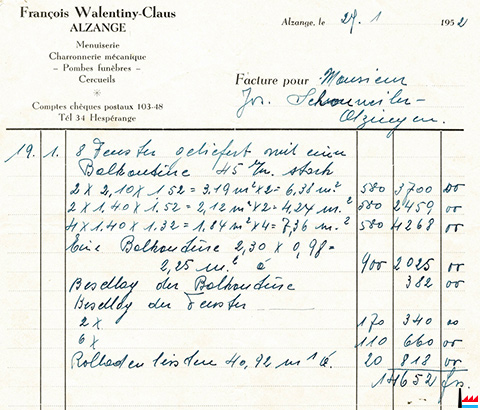 François Walentiny-Claus
ALZANGE
Menuiserie
Charronnerie mécanique
- Pombes funèbres -
Cercueils
Comptes chèques postaux 103-48
Tél 34 Hespérange
Alzange, le 27. 1 1952
Facture pour Monsieur
Jos. Schouweiler-
Olzingen.
19. 1. 8 Fenster geliefert mit einer
Balkontüre 45 m/m. stark
2 x 2,10 x 1,52 = 3,19 m² x 2 = 6,38 m² 580 3700 00
2 x 1,40 x 1,52 = 2,12 m² x 2 = 4,24 m² 580 2459 00
4 x 1,40 x 1,32 = 1,84 m² x 4 = 7,36 m² 580 4268 00
Eine Balkontüre 2,30 x 0,98 =
2,25 m² á 900 2025 00
Beschlag der Balkontüre 382 00
Beschlag der Fenster
2 x 170 340 00
6 x 110 660 00
Rolladen leisten 40,92 m¹ á 20 818 00
14652 frs.